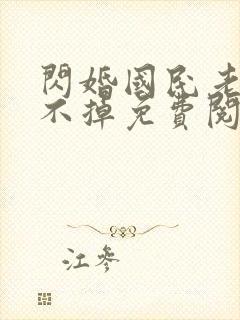 閃婚國民老
不掉免費閱
江參